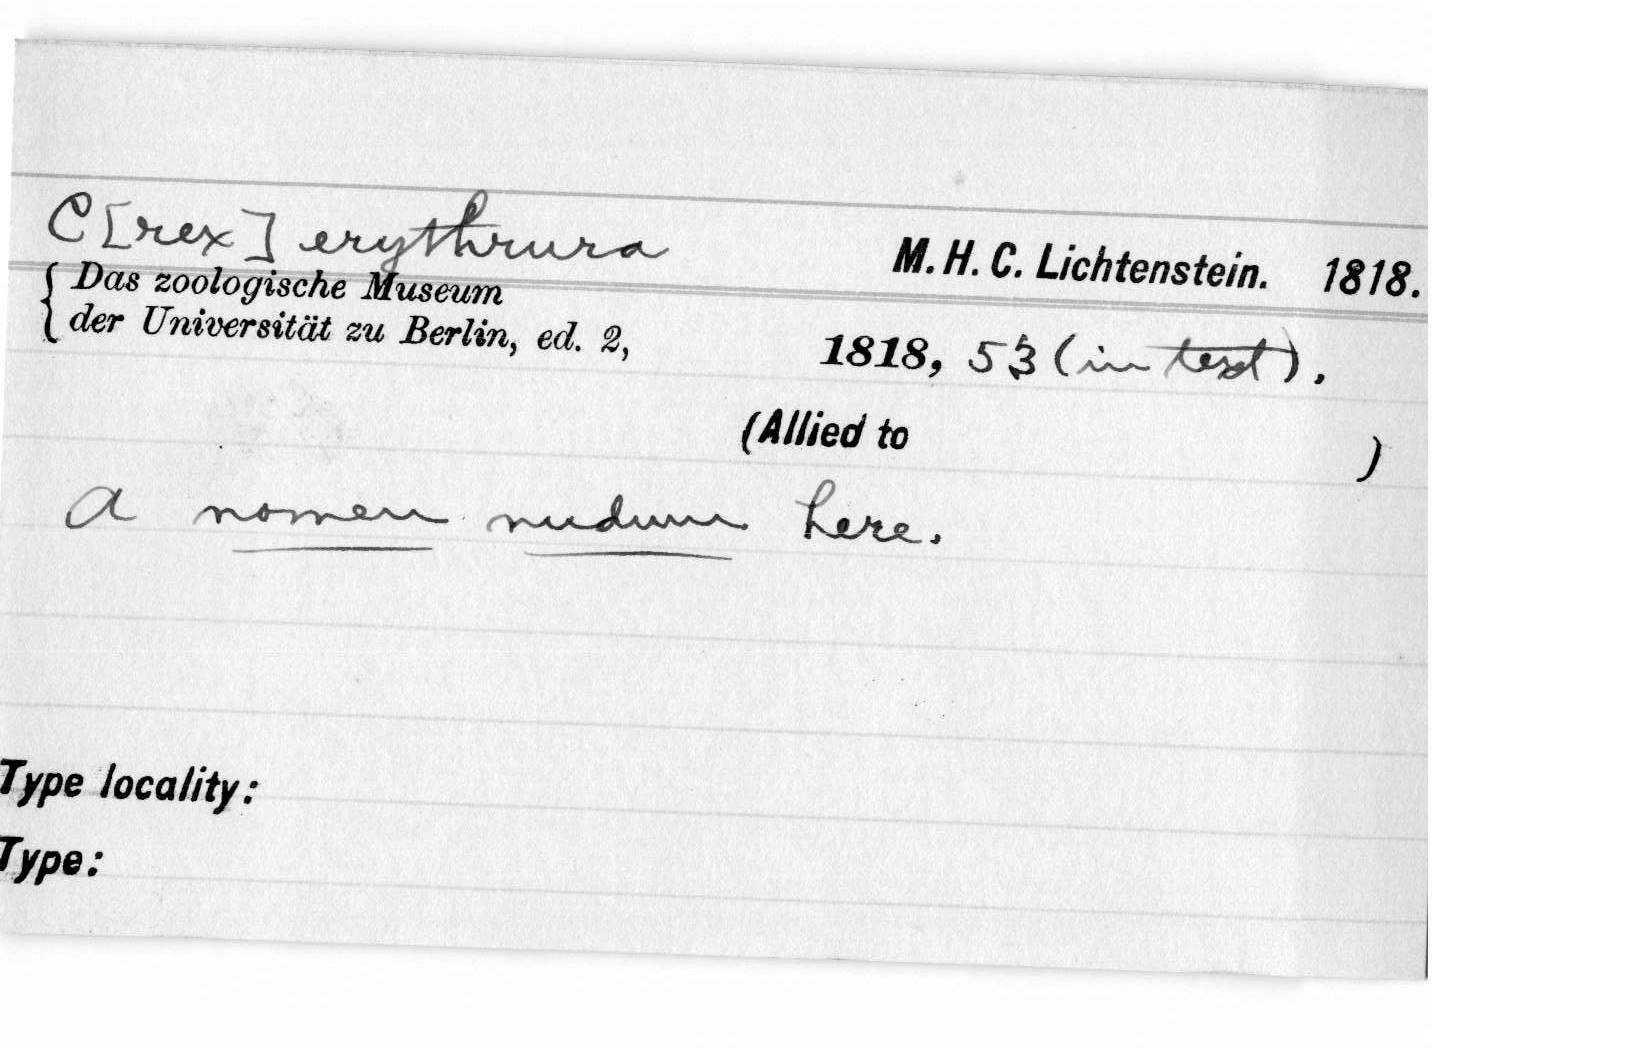 C[rex] erythrura M. H. C. Lichtenstein. 1818.
{ Das zoologische Museum
der Universität zu Berlin, ed. 2, 1818, 53 (in text).
(Allied to )
A nomen nudum here.
Type locality:
Type: